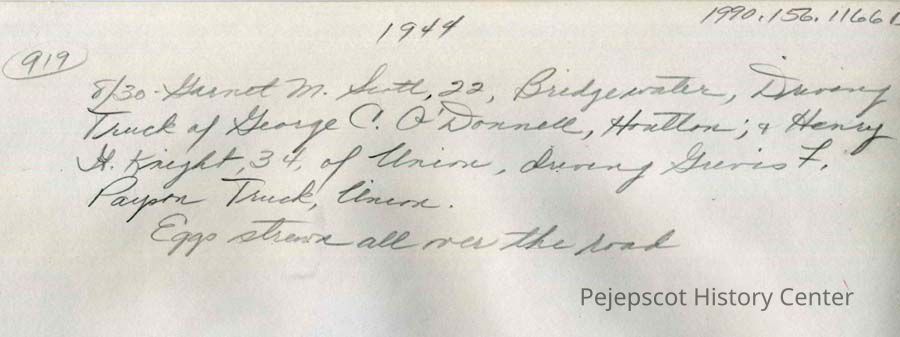 1944
1990.156.1166
919
8/30 - Garnet M. Scott, 22, Bridgewater, Driving
Truck of George C. O'Donnell, Houlton; & Henry
H. Knight, 34, of Union, driving F.
Payson Truck, Union.
Eggs strewn all over the road
Pejepscot History Center